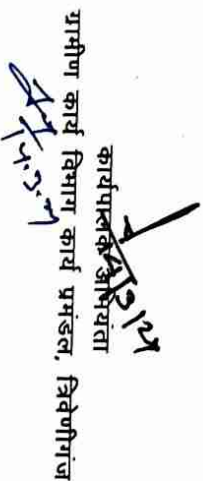 कार्यपालक अभियंता
ग्रामीण कार्य विभाग कार्य प्रमंडल, त्रिवेणीगंज